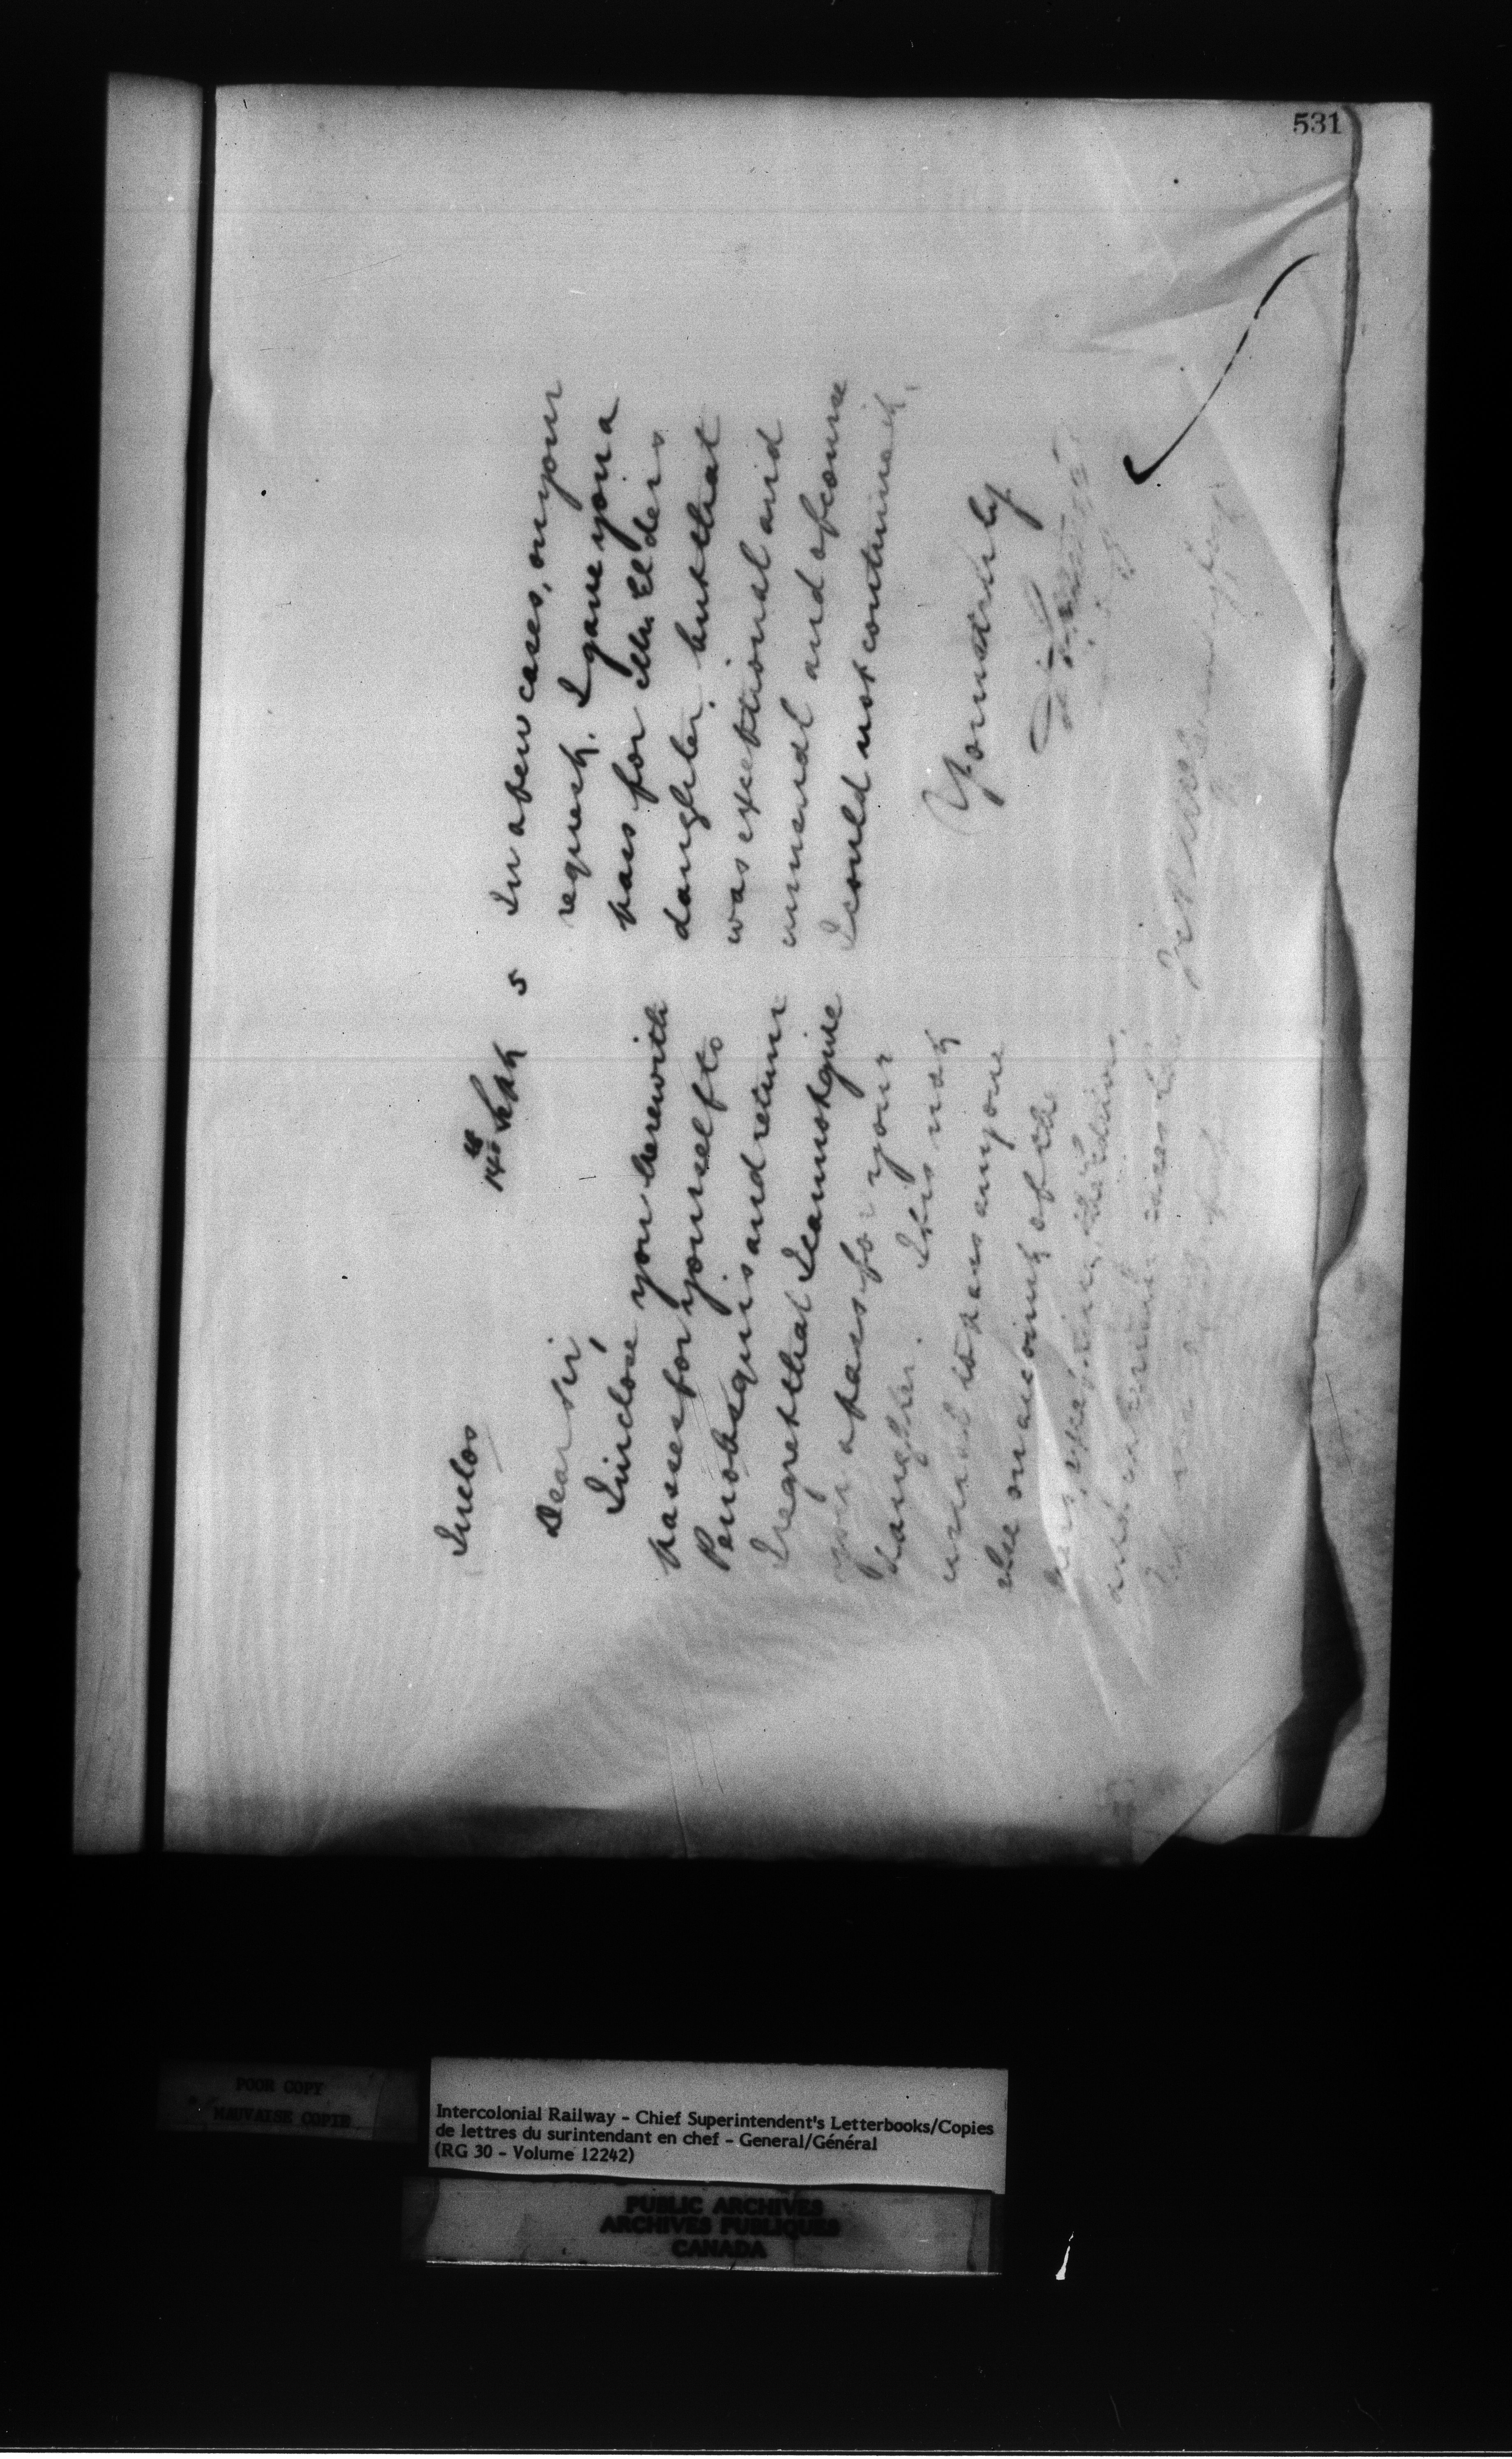 531
Inclos
14th Sept 5
Dear Sir,
I inclose you herewith
passes for yourself to
Penobsquis and return
I regret that I cannot give
you a pass for your
daughter. It is not
usual to pass anyone
else on account of the
press, except the Editors,
and
In a few cases, on your
request, I gave you a
pass for Mr. Elders
daughter, but that
was exceptional and
unusual and of course
I could not continue it,
Yours truly
POOR COPY
MAUVAISE COPIE
Intercolonial Railway - Chief Superintendent's Letterbooks/Copies
de lettres du surintendant en chef - General/Général
(RG 30 - Volume 12242)
PUBLIC ARCHIVES
ARCHIVES PUBLIQUES
CANADA